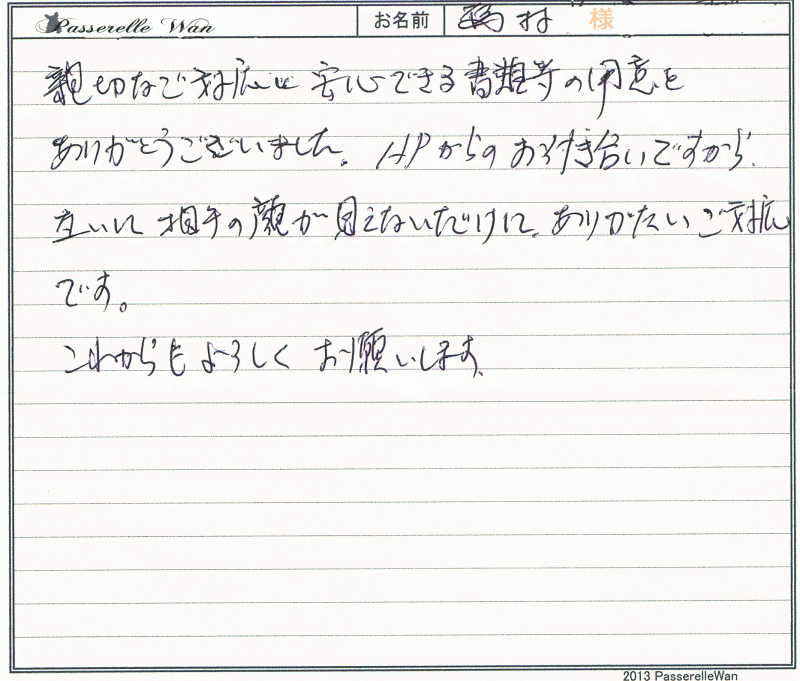 Passerelle Wan お名前 村 様
親切なご対応に安心できる書類等の用意を
ありがとうございました。HPからのお付き合いですから、
互いに相手の顔が見えないだけに、ありがたいご対応
です。
これからもよろしくお願いします。
2013 PasserelleWan